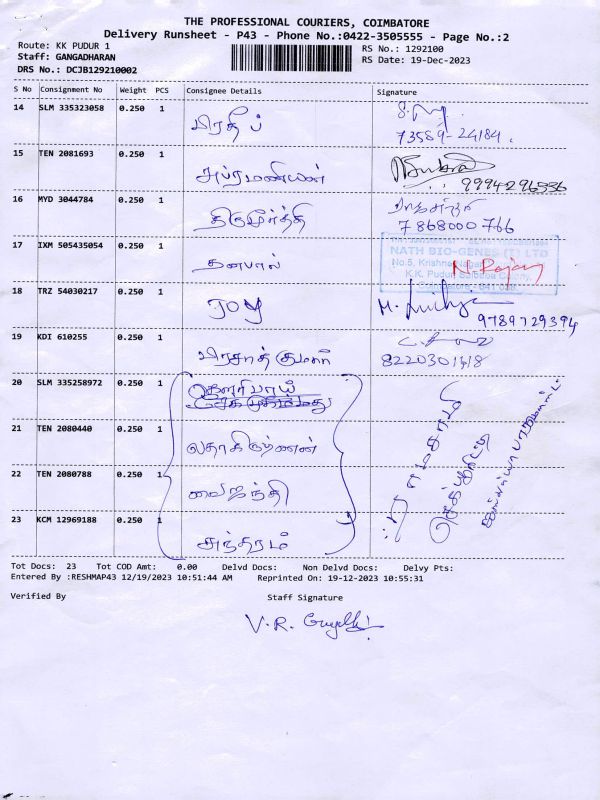 THE PROFESSIONAL COURIERS, COIMBATORE
Delivery Runsheet - P43 - Phone No.:0422-3505555 - Page No.:2
Route: KK PUDUR 1
RS No.: 1292100
Staff: GANGADHARAN
RS Date: 19-Dec-2023
DRS No.: DCJB129210002
S No Consignment No Weight PCS Consignee Details Signature
14 SLM 335323058 0.250 1 பிரதீப்
73589-24184.
15 TEN 2081693 0.250 1
9994296536
16 MYD 3044784 0.250 1 திருமூர்த்தி
7868000766
17 IXM 505435054 0.250 1 தனபால்
NATH BIO-GENES (I) LTD
No.5, Krishna Nagar
K.K. Pudur
N. Rajan
18 TRZ 54030217 0.250 1 JOY
9789729394
19 KDI 610255 0.250 1 பிரசாத்குமார்
8220301418
20 SLM 335258972 0.250 1
21 TEN 2080440 0.250 1
22 TEN 2080788 0.250 1 வைஜந்தி
23 KCM 12969188 0.250 1 சுந்தரம்
Tot Docs: 23 Tot COD Amt: 0.00 Delvd Docs: Non Delvd Docs: Delvy Pts:
Entered By :RESHMAP43 12/19/2023 10:51:44 AM Reprinted On: 19-12-2023 10:55:31
Verified By Staff Signature
V.R.